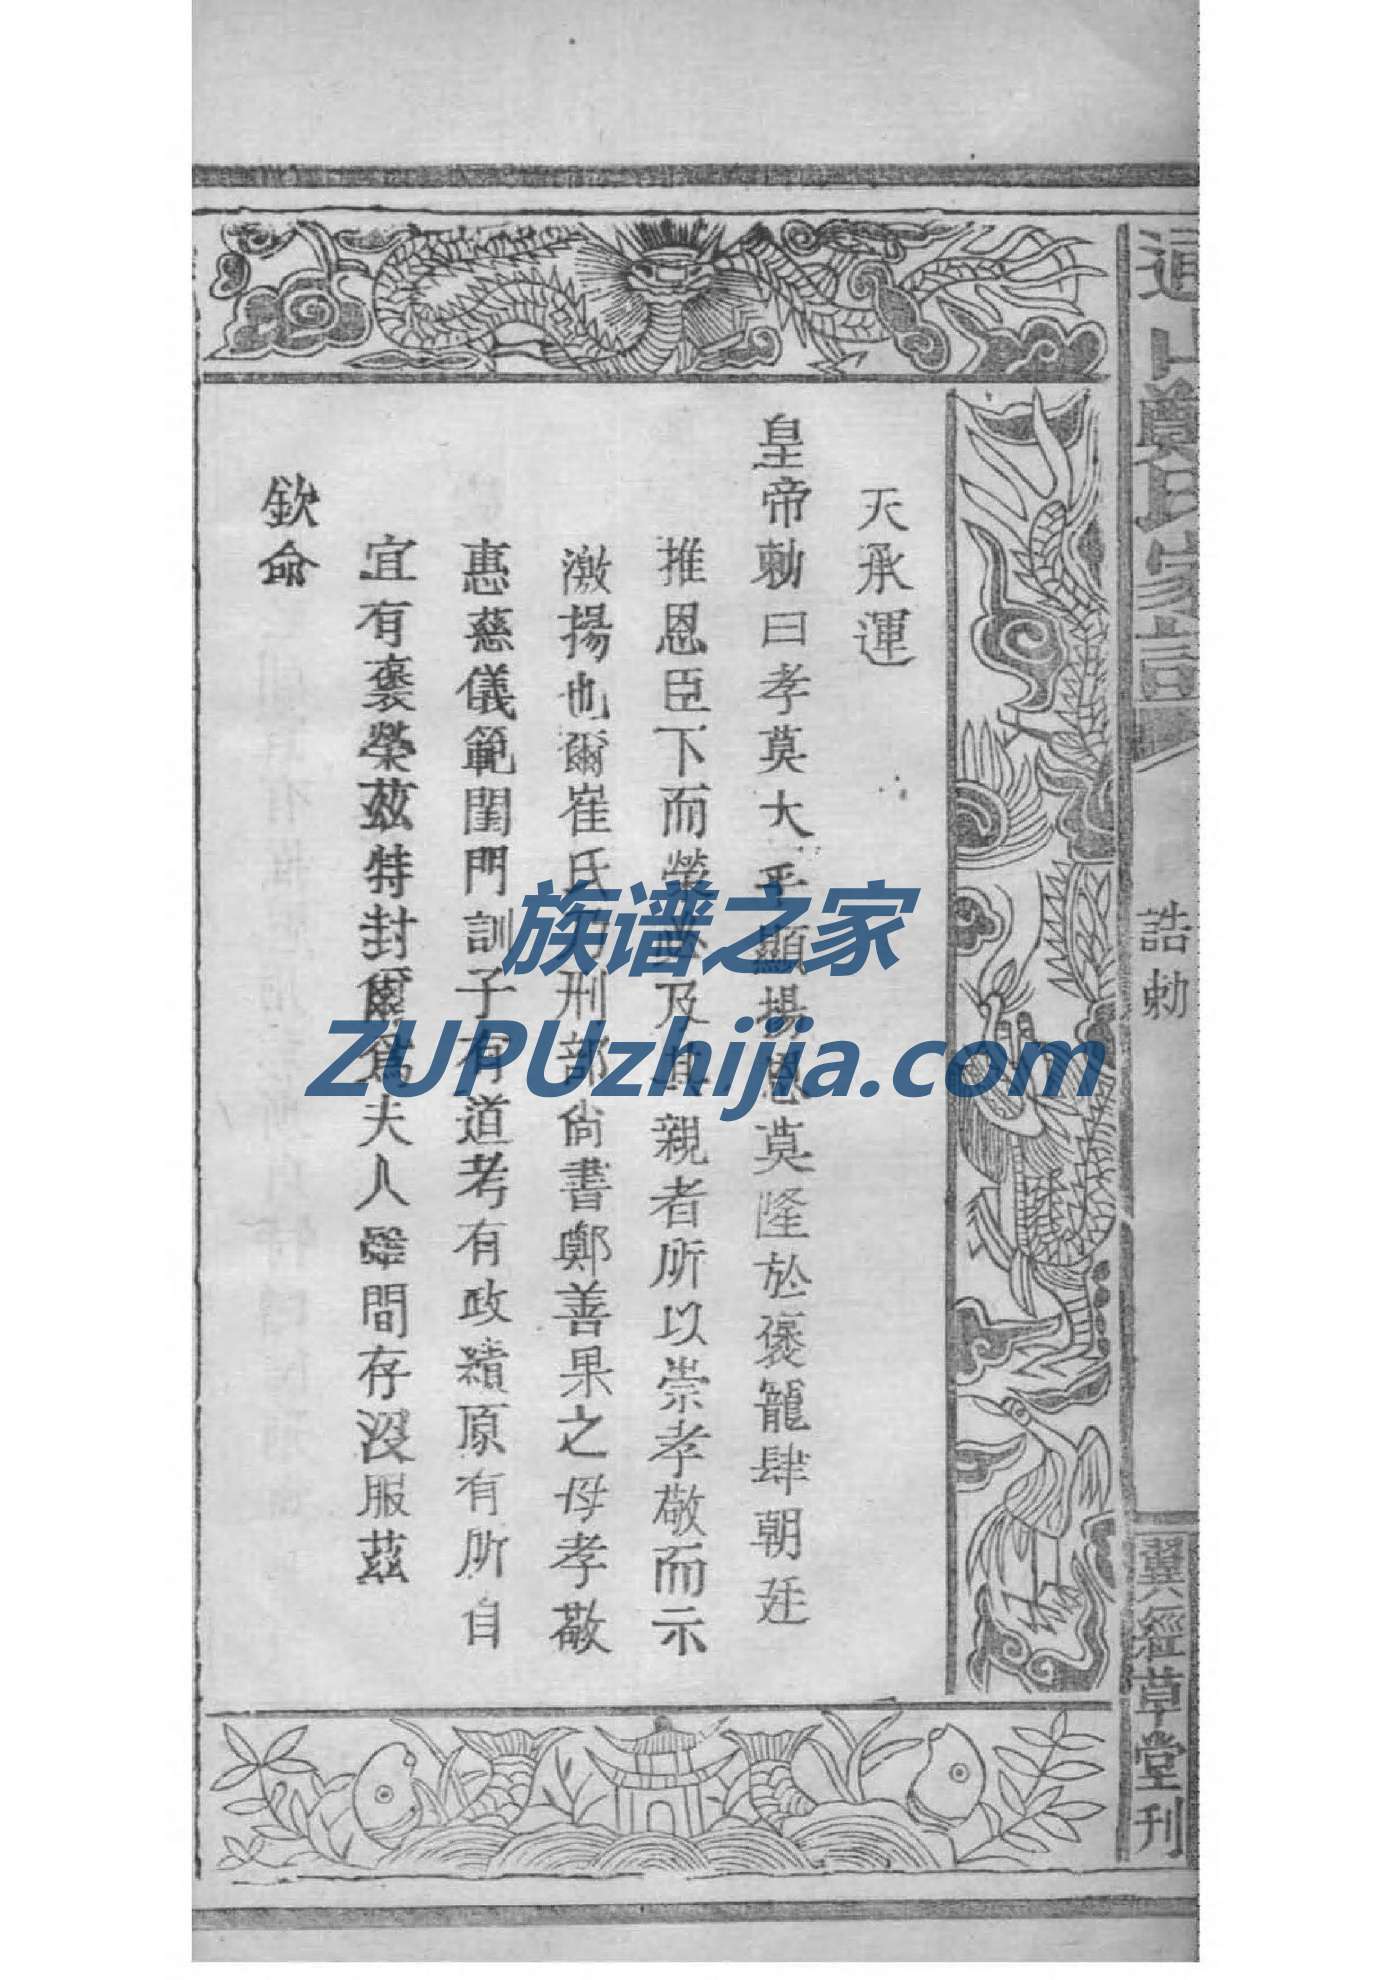 通山鄭氏家譜
誥勅
翼經草堂刊
天承運
皇帝勅曰孝莫大乎顯揚恩莫隆於褒寵肆朝廷
推恩臣下而榮必及其親者所以崇孝敬而示
激揚也爾崔氏乃刑部尙書鄭善果之母孝敬
惠慈儀範閨門訓子有道考有政績原有所自
宜有褒榮茲特封爾爲夫人 間存沒服茲
欽命
族谱之家
ZUPUzhijia.com